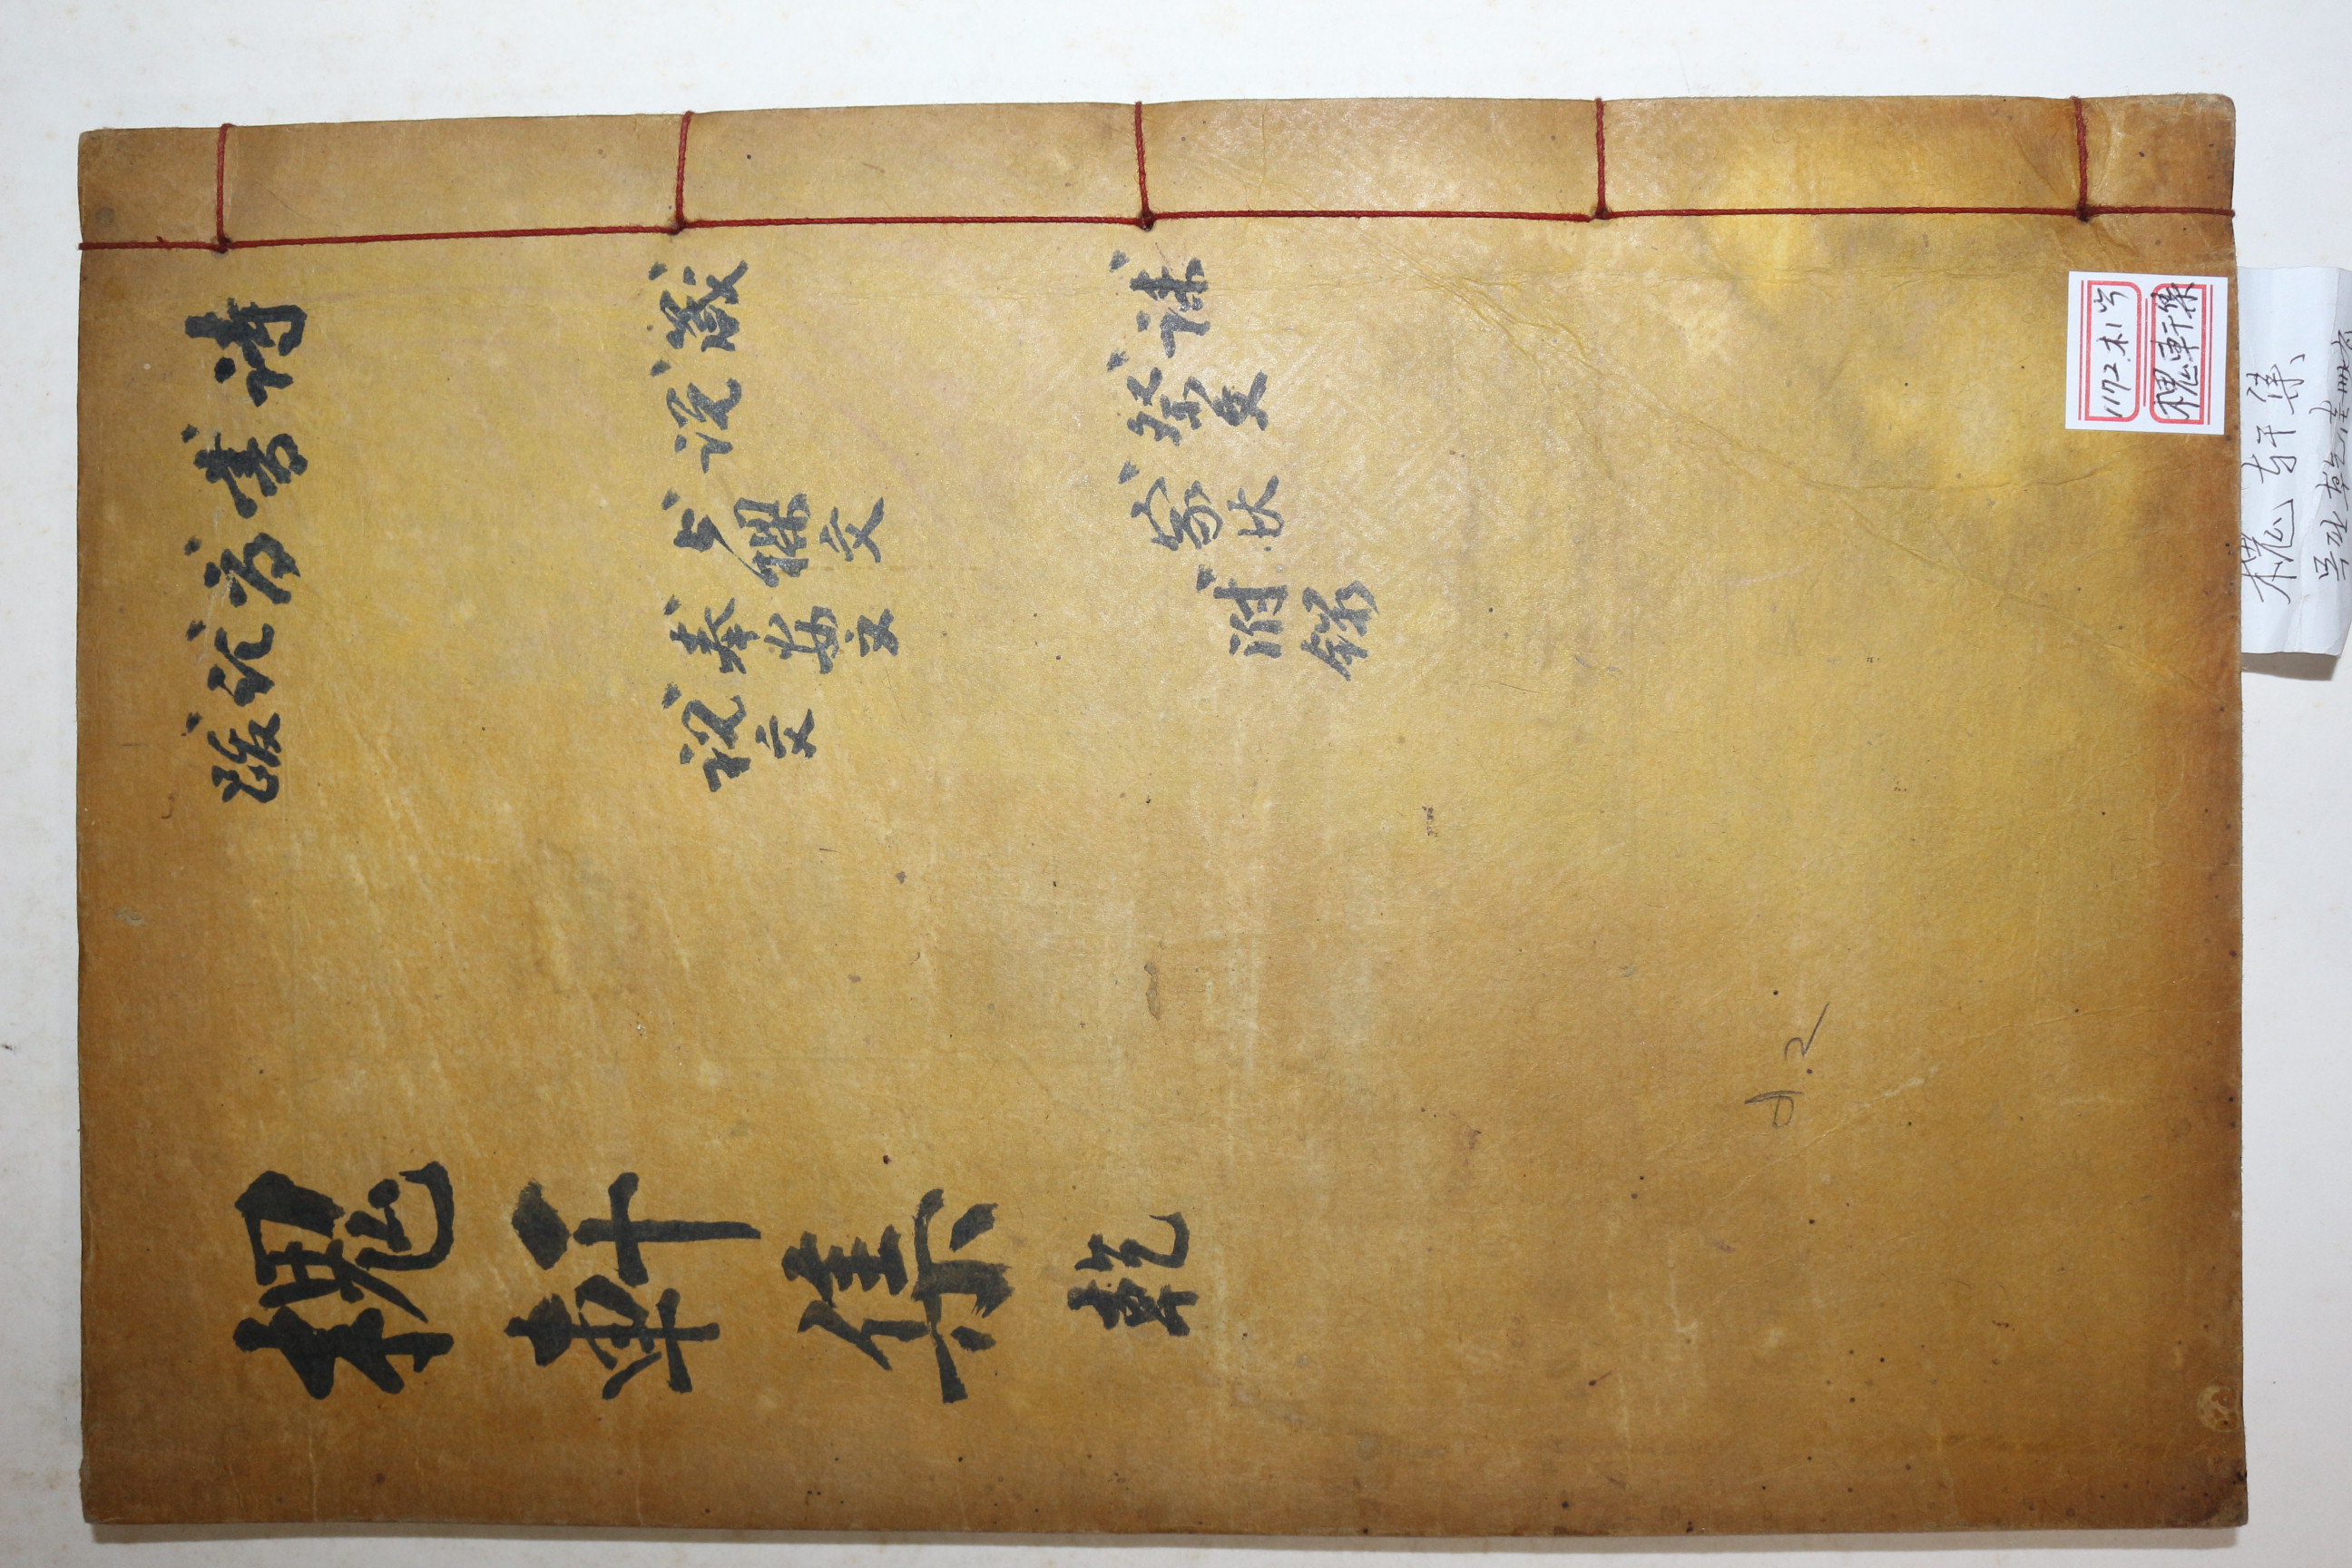 詩
書
序
記
跋
箴
說
上樑文
奉安文
祝文
誄
祭文
家狀
附錄
槐軒集 乾
槐軒集
槐軒集
목판 乾